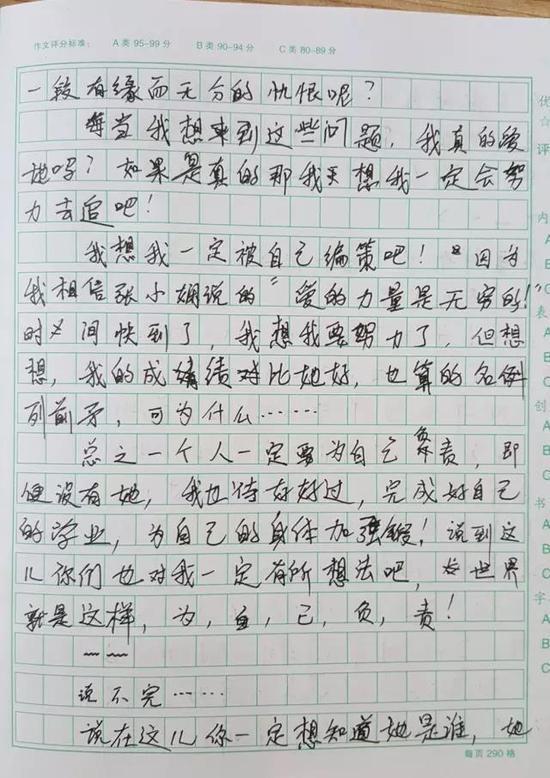 作文评分标准： A类 95-99分 B类 90-94分 C类 80-89分
一段有缘而无分的仇恨呢？
每当我想来到这些问题，我真的爱
她吗？如果是真的那我想我一定会努
力去追吧！
我想我一定被自己鞭策吧！因为
我相信张小娴说的"爱的力量是无穷的！"
时间快到了，我想我要努力了，但想
想，我的成绩对比她好，也算的名例
列前矛，可为什么……
总之一个人一定要为自己负责，即
便没有她，我也待好好过，完成好自己
的学业，为自己的身体加强锻！说到这
儿你们也对我一定有所想法吧，世界
就是这样，为，自，己，负，责！
~~
说不完……
说在这儿你一定想知道她是谁，她
每页 290 格
优
☆
评
内
A
B
C
表
A
B
C
创
A
B
C
书
A
B
C
字
A
B
C